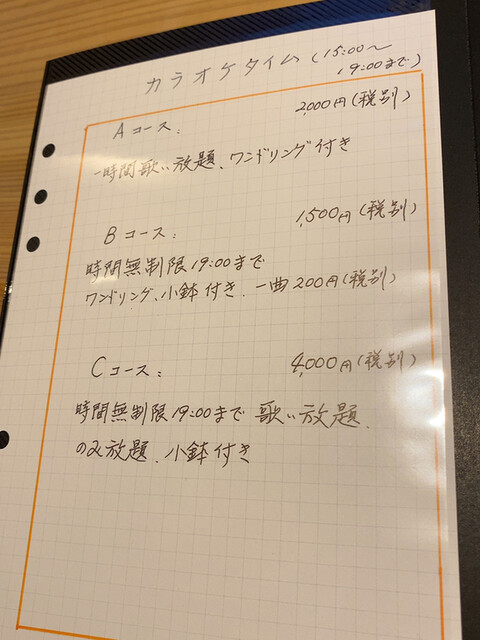 カラオケタイム(15:00〜
19:00まで)
Aコース: 2,000円(税別)
一時間歌い放題、ワンドリング付き
Bコース: 1,500円(税別)
時間無制限19:00まで
ワンドリング、小鉢付き.一曲200円(税別)
Cコース: 4,000円(税別)
時間無制限19:00まで 歌い放題.
のみ放題.小鉢付き